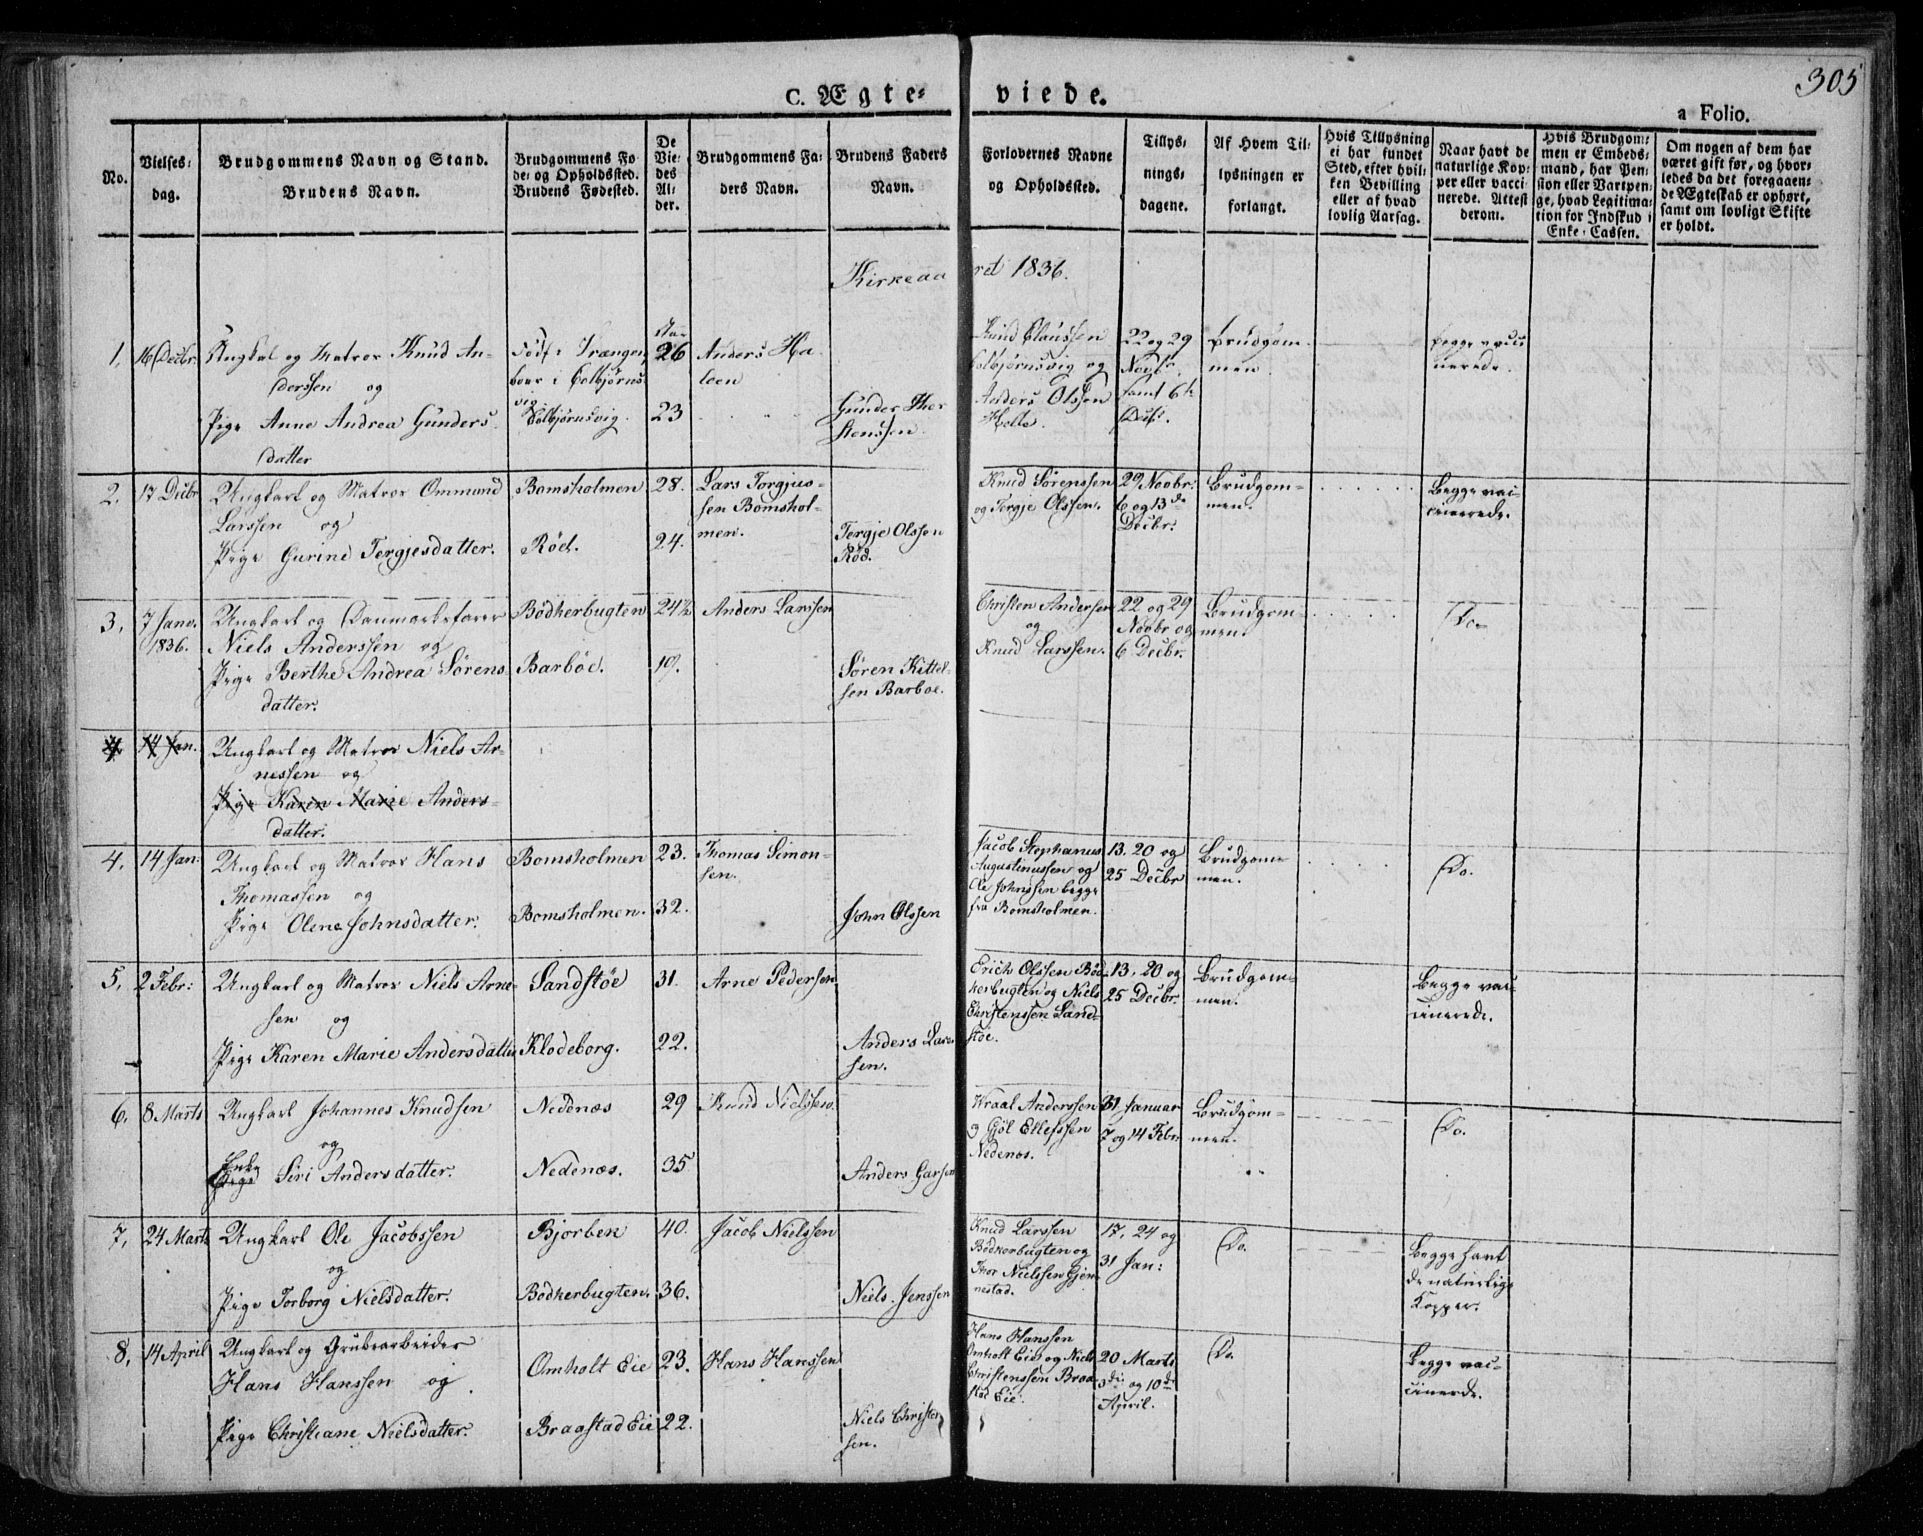 305
C. Ægte= viede.
a Folio.
No.
Vielses=
dag.
Brudgommens Navn og Stand.
Brudens Navn.
Brudgommens Fø=
de= og Opholdssted.
Brudens Fødested.
De
Vie=
des
Al=
der.
Brudgommens Fa=
ders Navn.
Brudens Faders
Navn.
Forlovernes Navne
og Opholdssted.
Tillys=
nings=
dagene.
Af Hvem Til=
lysningen er
forlangt.
Hvis Tillysning
ei har fundet
Sted, efter hvil=
ken Bevilling
eller af hvad
lovlig Aarsag.
Naar havt de
naturlige Kop=
per eller vacci=
nerede. Attest
derom.
Hvis Brudgom=
men er Embeds=
mand, har Pen=
sion eller Vartpen=
ge, hvad Legitima=
tion for Indskud i
Enke=Cassen.
Om nogen af dem har
været gift før, og hvor=
ledes da det foregaaen=
de Ægteskab er ophørt,
samt om lovligt Skifte
er holdt.
Kirkeaa ret 1836.
1. 16 Decbr. Ungkal og Matros Knud An=
derssen og
Pige Anne Andrea Gunders
datter
Colbjørnsvig.
26
23
Anders
Gunder Ther
stenssen
Knud Claussen
Colbjørnsvig og
Anders Olssen
Helle.
22 og 29
Novbr.
samt 6te
Decbr.
Brudgom
men.
begge vacci
nerede.
2. 17 Decbr Ungkarl og Matros Ommund
Larssen og
Pige Gurine Tergjesdatter.
Bomsholmen
Röd.
28.
24.
Lars Torgjus=
sen Bomshol=
men.
Tergje Olssen
Röd.
Knud Sörenssen
og Tergje Olssen.
29 Novbr:
6 og 13de
Decbr:
Brudgom=
men.
Begge vac=
cinerede.
3. 7 Janv.
1836.
Ungkarl og Danmarksfarer
Niels Anderssen og
Pige Berthe Andrea Sörens=
datter.
Bödkerbugten
Barböe.
24½
19.
Anders Larssen
Sören Kittel=
sen Barboe.
Christen Andersen
og
Knud Larssen.
22 og 29
Novbr og
6 Decbr.
Brudgom=
men.
Do
4 14 Jan. Ungkarl og Matros Niels Ar=
nessen og
Pige Karen Marie Anders=
datter.
4. 14 Jan: Ungkarl og Matros Hans
Thomassen og
Pige Olene Johnsdatter.
Bomsholmen
Bomsholmen.
23.
32.
Thomas Simon=
sen.
John Olssen
Jacob Stephanus
Augustinussen og
Ole Johnssen begge
fra Bomsholmen.
13. 20 og
25 Decbr
Brudgom=
men.
Do.
5. 2 Febr: Ungkarl og Matros Niels Arne=
sen og
Pige Karen Marie Andersdatter
Sandstöe
Klodeborg.
31.
22.
Arne Pedersen
Anders Lars
sen.
Erich Olssen Böd=
kerbugten og Niels
Christenssen Sand=
stöe.
13. 20 og
25 Decbr.
Brudgom=
men.
Begge vac=
cinerede.
6. 8 Marts Ungkarl Johannes Knudsen
og
Enke
Pige Siri Andersdatter.
Nedenæs
Nedenæs.
29
35
Knud Nielssen.
Anders Garsen
Wraal Anderssen
og Gjöl Ellefssen
Nedenæs.
31 Januar
7 og 14 Febr:
Brudgom=
men.
Do.
7. 24 Marts Ungkarl Ole Jacobssen
og
Pige Torborg Nielsdatter.
Bjorben
Bödkerbugten.
40.
36.
Jacob Nielssen
Niels Jenssen
Knud Larssen
Bödkerbugten og
Thor Nielssen Gjen=
nestad.
17, 24 og
31 Jan:
Do.
Begge havt
de naturlige
Kopper.
8. 14 April Ungkarl og Grubearbeider
Hans Hanssen og
Pige Christiane Nielsdatter.
Omholt Eie
Braastad Eie
23.
22.
Hans Hanssen
Niels Christen
sen.
Hans Hanssen
Omholt Eie og Niels
Christenssen Braa=
stad Eie.
20 Marts
3die og 10de
April.
Do.
Begge vac=
cinerede.